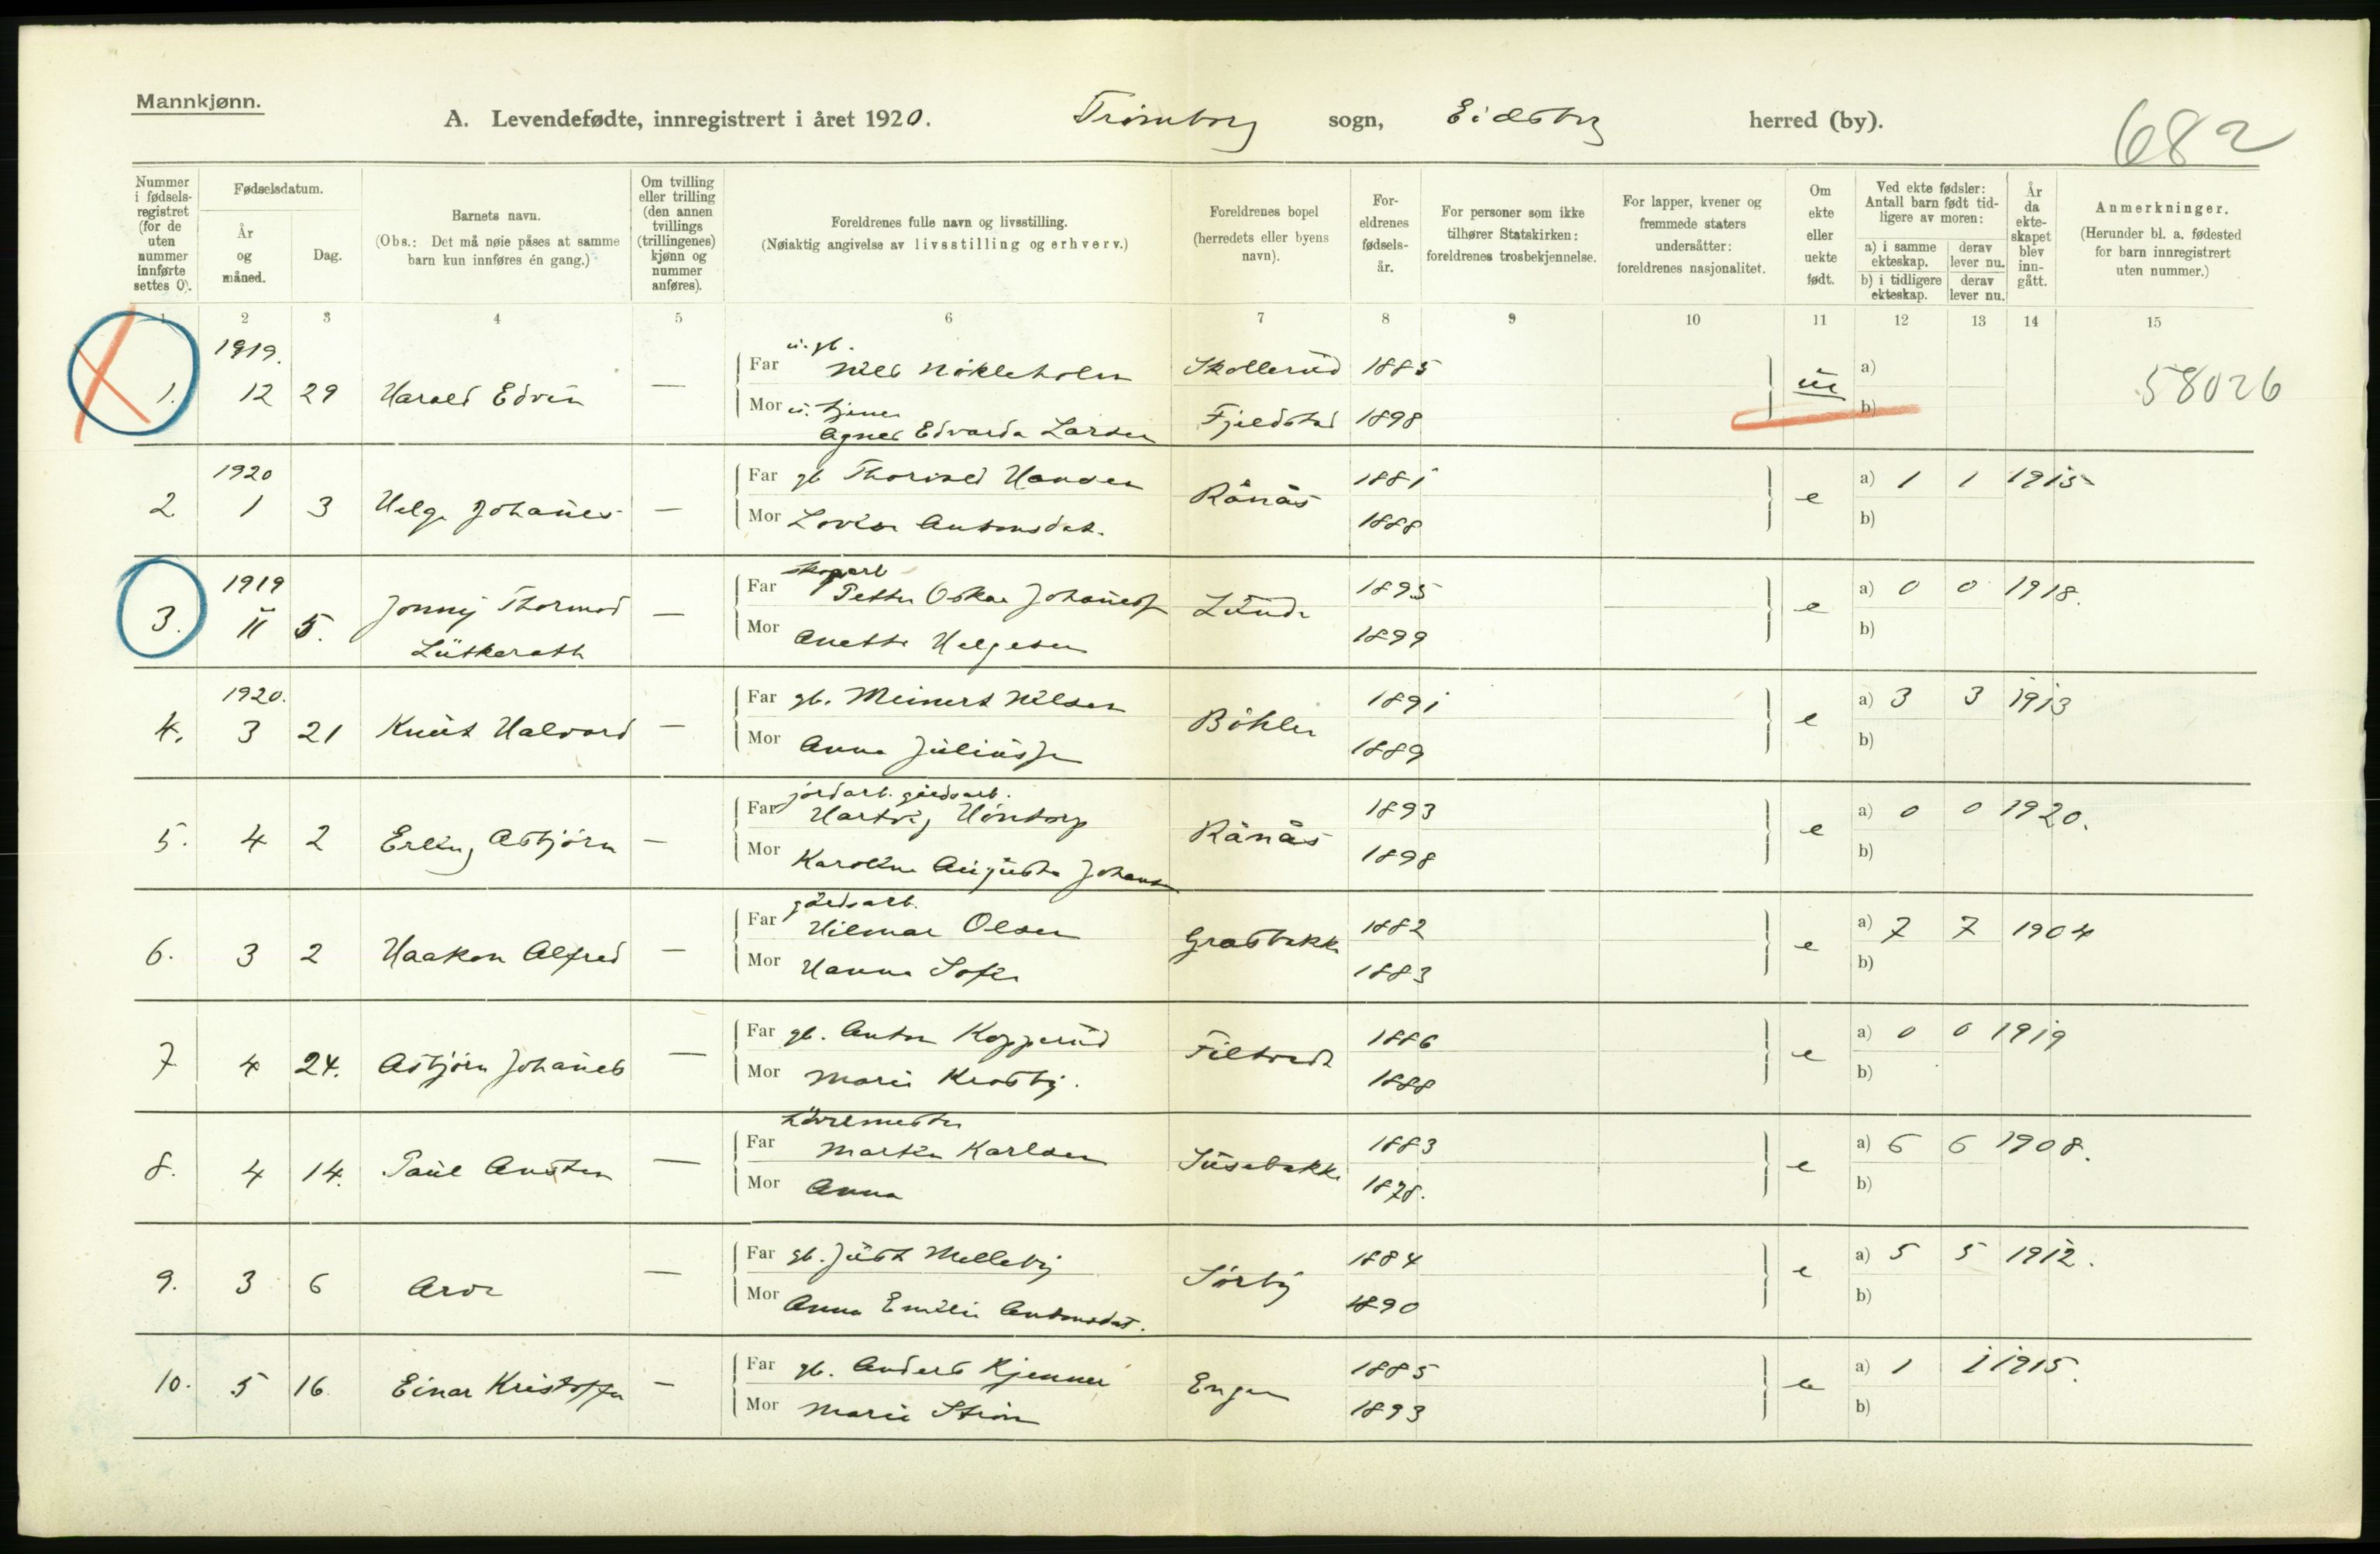 Mannkjønn.
A. Levendefødte, innregistrert i året 1920. Trömborg sogn, Eidsberg herred (by).
682
Nummer i fødselsregistret (for de uten nummer innførte settes 0).
Fødselsdatum.
År og måned.
Dag.
Barnets navn.
(Obs.: Det må nøie påses at samme barn kun innføres én gang.)
Om tvilling eller trilling (den annen tvillings (trillingenes) kjønn og nummer anføres).
Foreldrenes fulle navn og livsstilling.
(Nøiaktig angivelse av livsstilling og erhverv.)
Foreldrenes bopel (herredets eller byens navn).
Foreldrenes fødselsår.
For personer som ikke tilhører Statskirken: foreldrenes trosbekjennelse.
For lapper, kvener og fremmede staters undersåtter: foreldrenes nasjonalitet.
Om ekte eller uekte født.
Ved ekte fødsler: Antall barn født tidligere av moren:
a) i samme ekteskap.
derav lever nu.
b) i tidligere ekteskap.
derav lever nu.
År da ekteskapet blev inngått.
Anmerkninger.
(Herunder bl. a. fødested for barn innregistrert uten nummer.)
1 2 3 4 5 6 7 8 9 10 11 12 13 14 15
1919.
1. 12 29 Harald Edvin — Far u. gb. Nils Nökleholm Skollerüd 1885 ue a) 58026
Mor u. tjener Agnes Edvarda Larsen Fjeldstad 1898 b)
1920
2 1 3 Helge Johannes — Far gb Thorvald Hansen Rånås 1881 e a) 1 1 1915
Mor Lovise Antonsdat. 1888 b)
1919
3. 11 5. Jonny Thormod Lütkerath — Far skogarb Petter Oskar Johaness Lunde 1895 e a) 0 0 1918.
Mor Anette Helgesen 1899 b)
1920.
4. 3 21 Knut Halvard — Far gb. Meinert Nilsen Böhler 1891 e a) 3 3 1913
Mor Anna Juliusse 1889 b)
5. 4 2 Erling Asbjörn — Far jordarb. gårdsarb. Hartvig Höntorp Rånås 1893 e a) 0 0 1920.
Mor Karoline Augusta Johansen 1898 b)
6. 3 2 Haakon Alfred — Far gårdsarb. Hilmar Olsen Grasbekk 1882 e a) 7 7 1904
Mor Hanna Sofie 1883 b)
7 4 24. Asbjörn Johanes — Far gb. Anton Kopperud 1886 e a) 0 0 1919
Mor Marie Krosby. 1888 b)
8. 4 14. Paul Austen — Far Martin Karlsen Süsebakke 1883 e a) 6 6 1908.
Mor Anna 1878. b)
9. 3 6 Arve — Far gb. Just Melleby Sörby 1884 e a) 5 5 1912.
Mor Anna Emilie Antonsdat. 1890 b)
10. 5 16 Einar Kristoffer — Far gb. Anders Kjenner Engen 1885 e a) 1 1 1915.
Mor Marie Ström 1893 b)